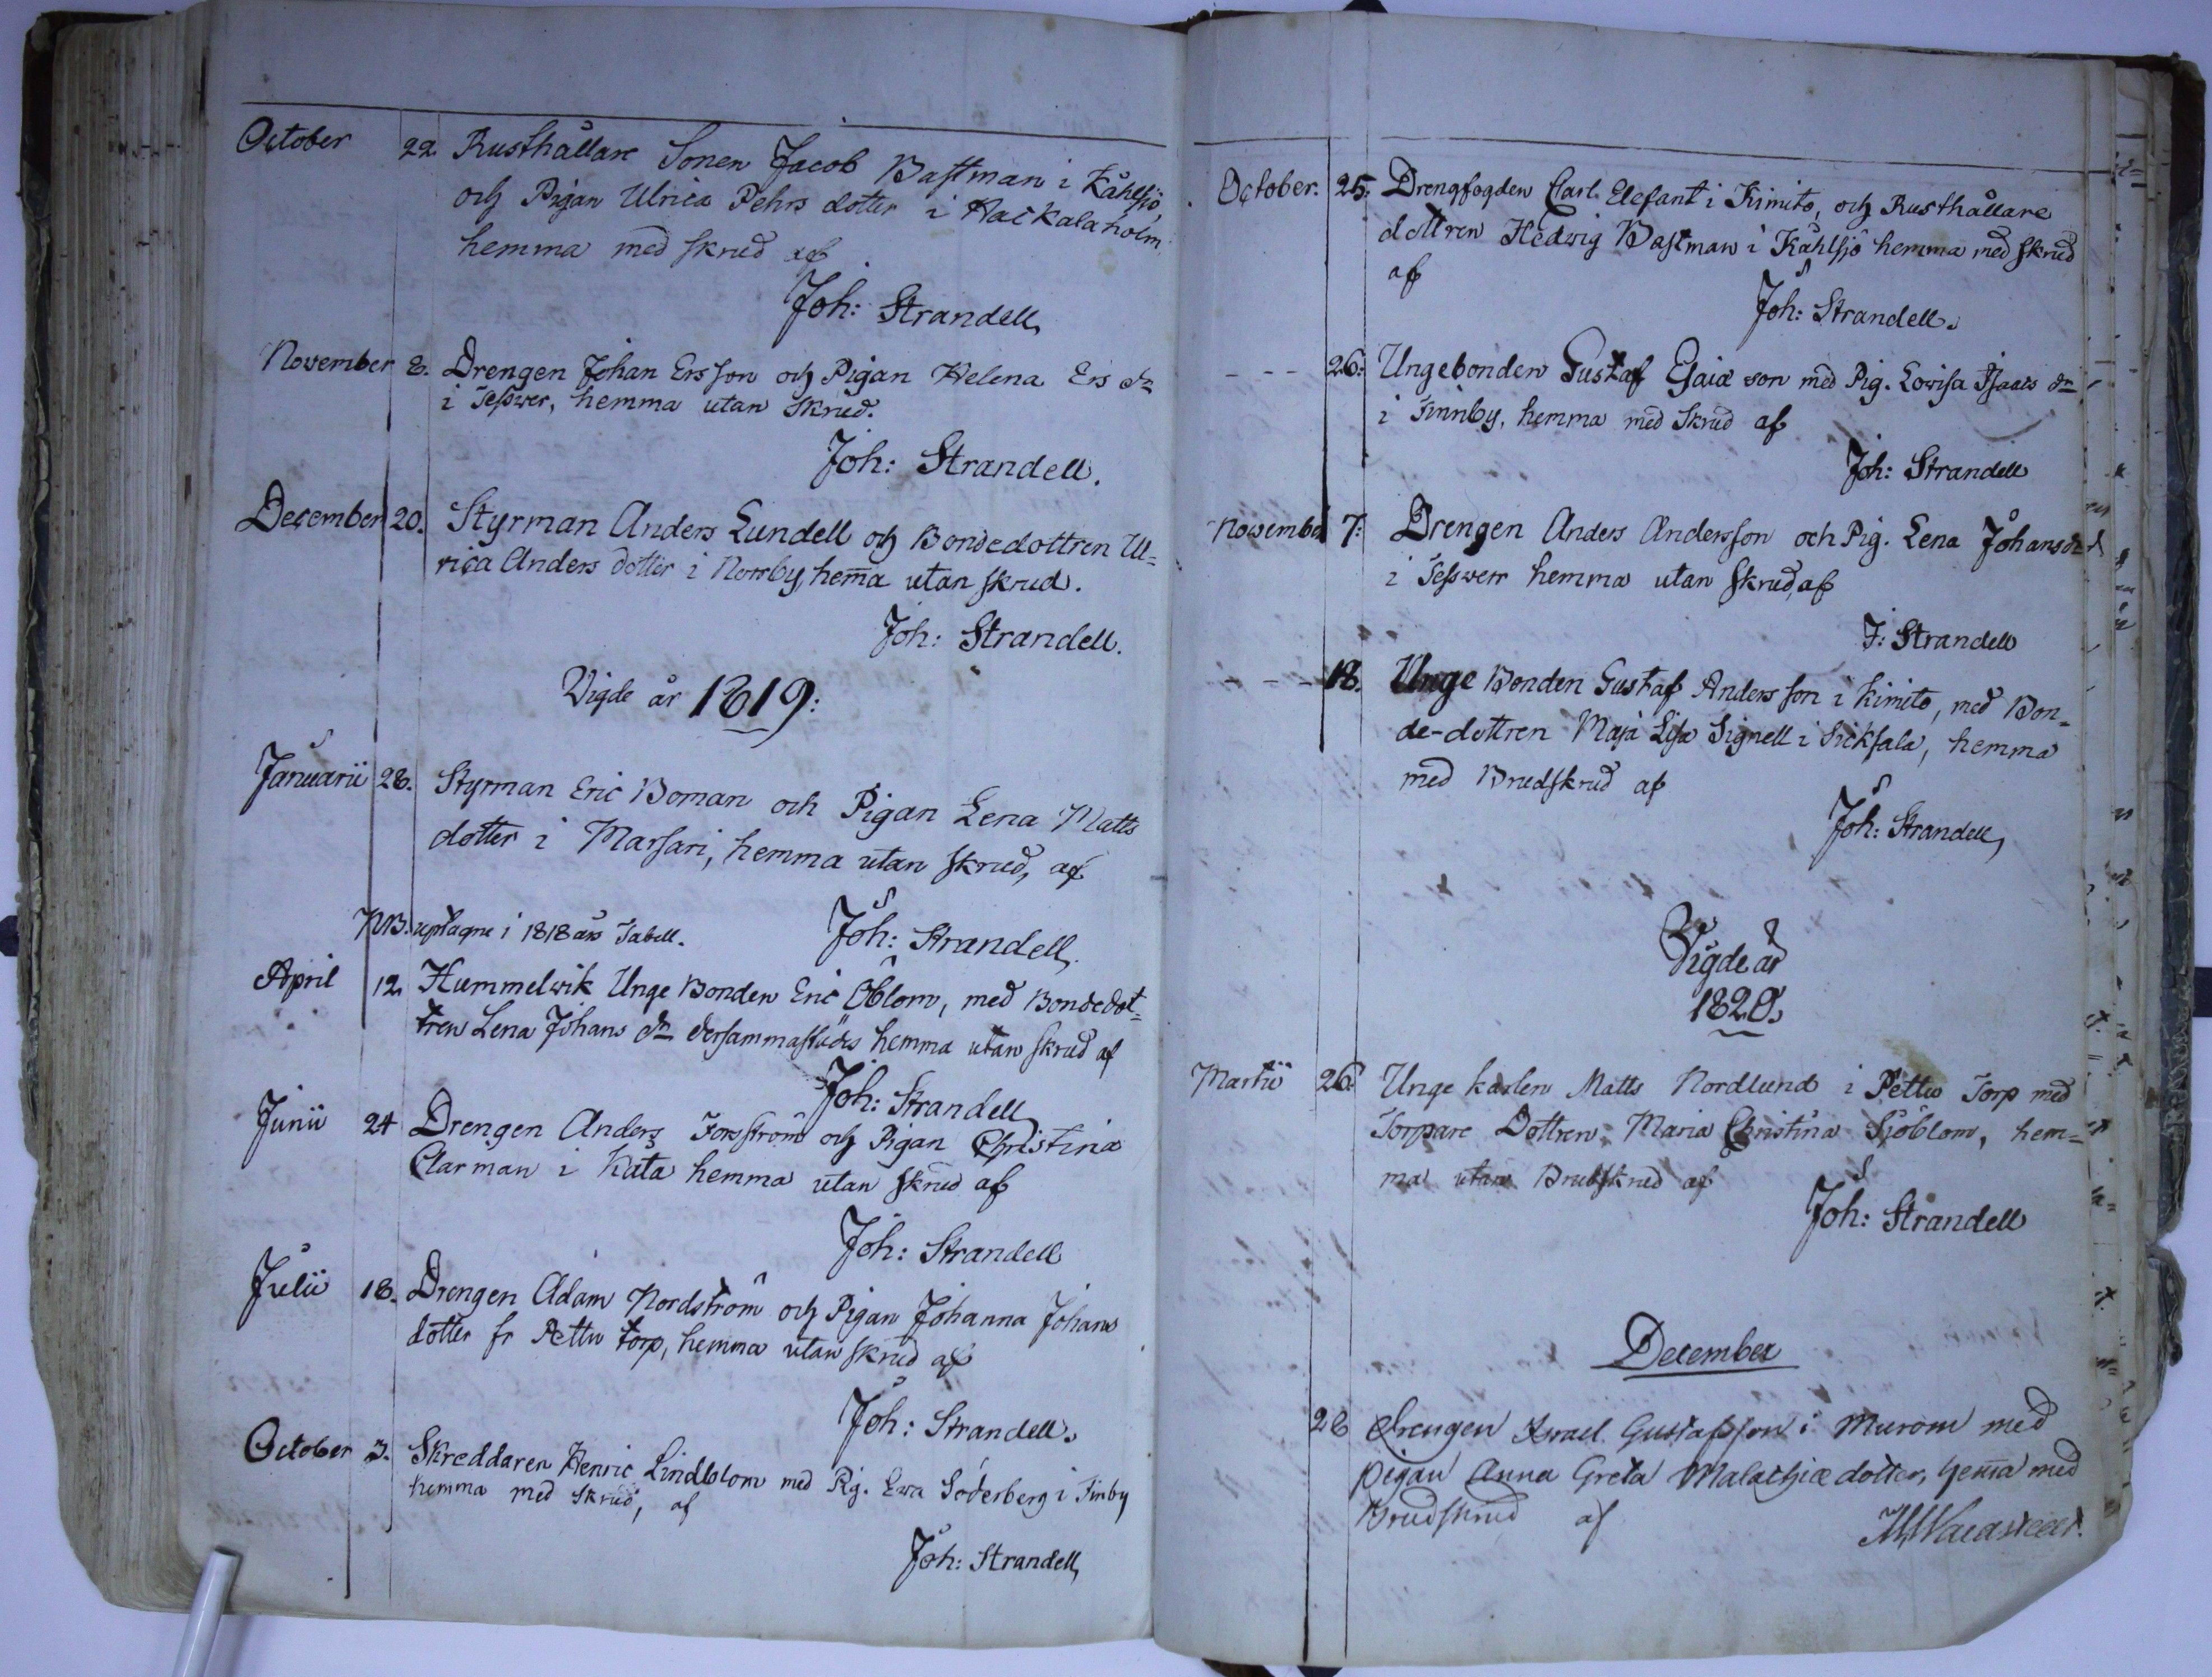 October 22. Rusthållare Sonen Jacob Bastman i Kåhlsjö
och Pigan Ulrica Pehrs dotter i Kackalaholm,
hemma med skrud af
Joh: Strandell,
November 8. Drengen Johan Ersson och Pigan Helena Ers dr
i Tesswer, hemma utan Skrud.
Joh: Strandell.
December 20. Styrman Anders Lundell och Bondedottren Ul=
rica Anders dotter i Norrby, hema utan skrud.
Joh: Strandell.
Vigde år 1819:
Januarii 28. Styrman Eric Boman och Pigan Lena Matts
dotter i Marsari, hemma utan skrud, af
NB. uptagne i 1818 års Tabell. Joh: Strandell.
April 12. Hummelwik Unge Bonden Eric Öblom, med Bondedot=
tren Lena Johans dr dersammastädes hemma utan skrud af
Joh: Strandell
Junii 24 Drengen Anders Forsström och Pigan Christina
Clarman i Kata hemma utan skrud af
Joh: Strandell
Julii 18. Drengen Adam Nordström och Pigan Johanna Johans
dotter fr Pettu torp, hemma utan skrud af
Joh: Strandell.
October 3. Skreddaren Henric Lindblom med Pig. Ewa Söderberg i Finby
hemma med skrud, af
Joh: Strandell,
October. 25. Drengfogden Carl Elefant i Kimito, och Rusthållare
dottren Hedwig Bastman i Kåhlsjö hemma med skrud
af
Joh: Strandell.
- - - 26: Ungebonden Gustaf Esaiæ son med Pig. Lowisa Isaacs dr
i Finnby, hemma med Skrud af
Joh: Strandell
November 7: Drengen Anders Andersson och Pig. Lena Johansdr
i Tesswerr hemma utan skrud, af
J: Strandell
- - - 18. Unge Bonden Gustaf Anders son i Kimito, med Bon=
de-dottren Maja Lisa Signell i Sicksala, hemma
med Brudskrud af
Joh: Strandell,
Vigde år
1820.
Martii 26. Unge karlen Matts Nordlund i Pettu Torp med
Torpare Dottren Maria Christina Sjöblom, hem=
ma utan Brudskrud af
Joh: Strandell
December
28 Drengen Israel Gustafsson i Murom med
pigan Anna Greta Malachiæ dotter, hema med
Brudskrud af